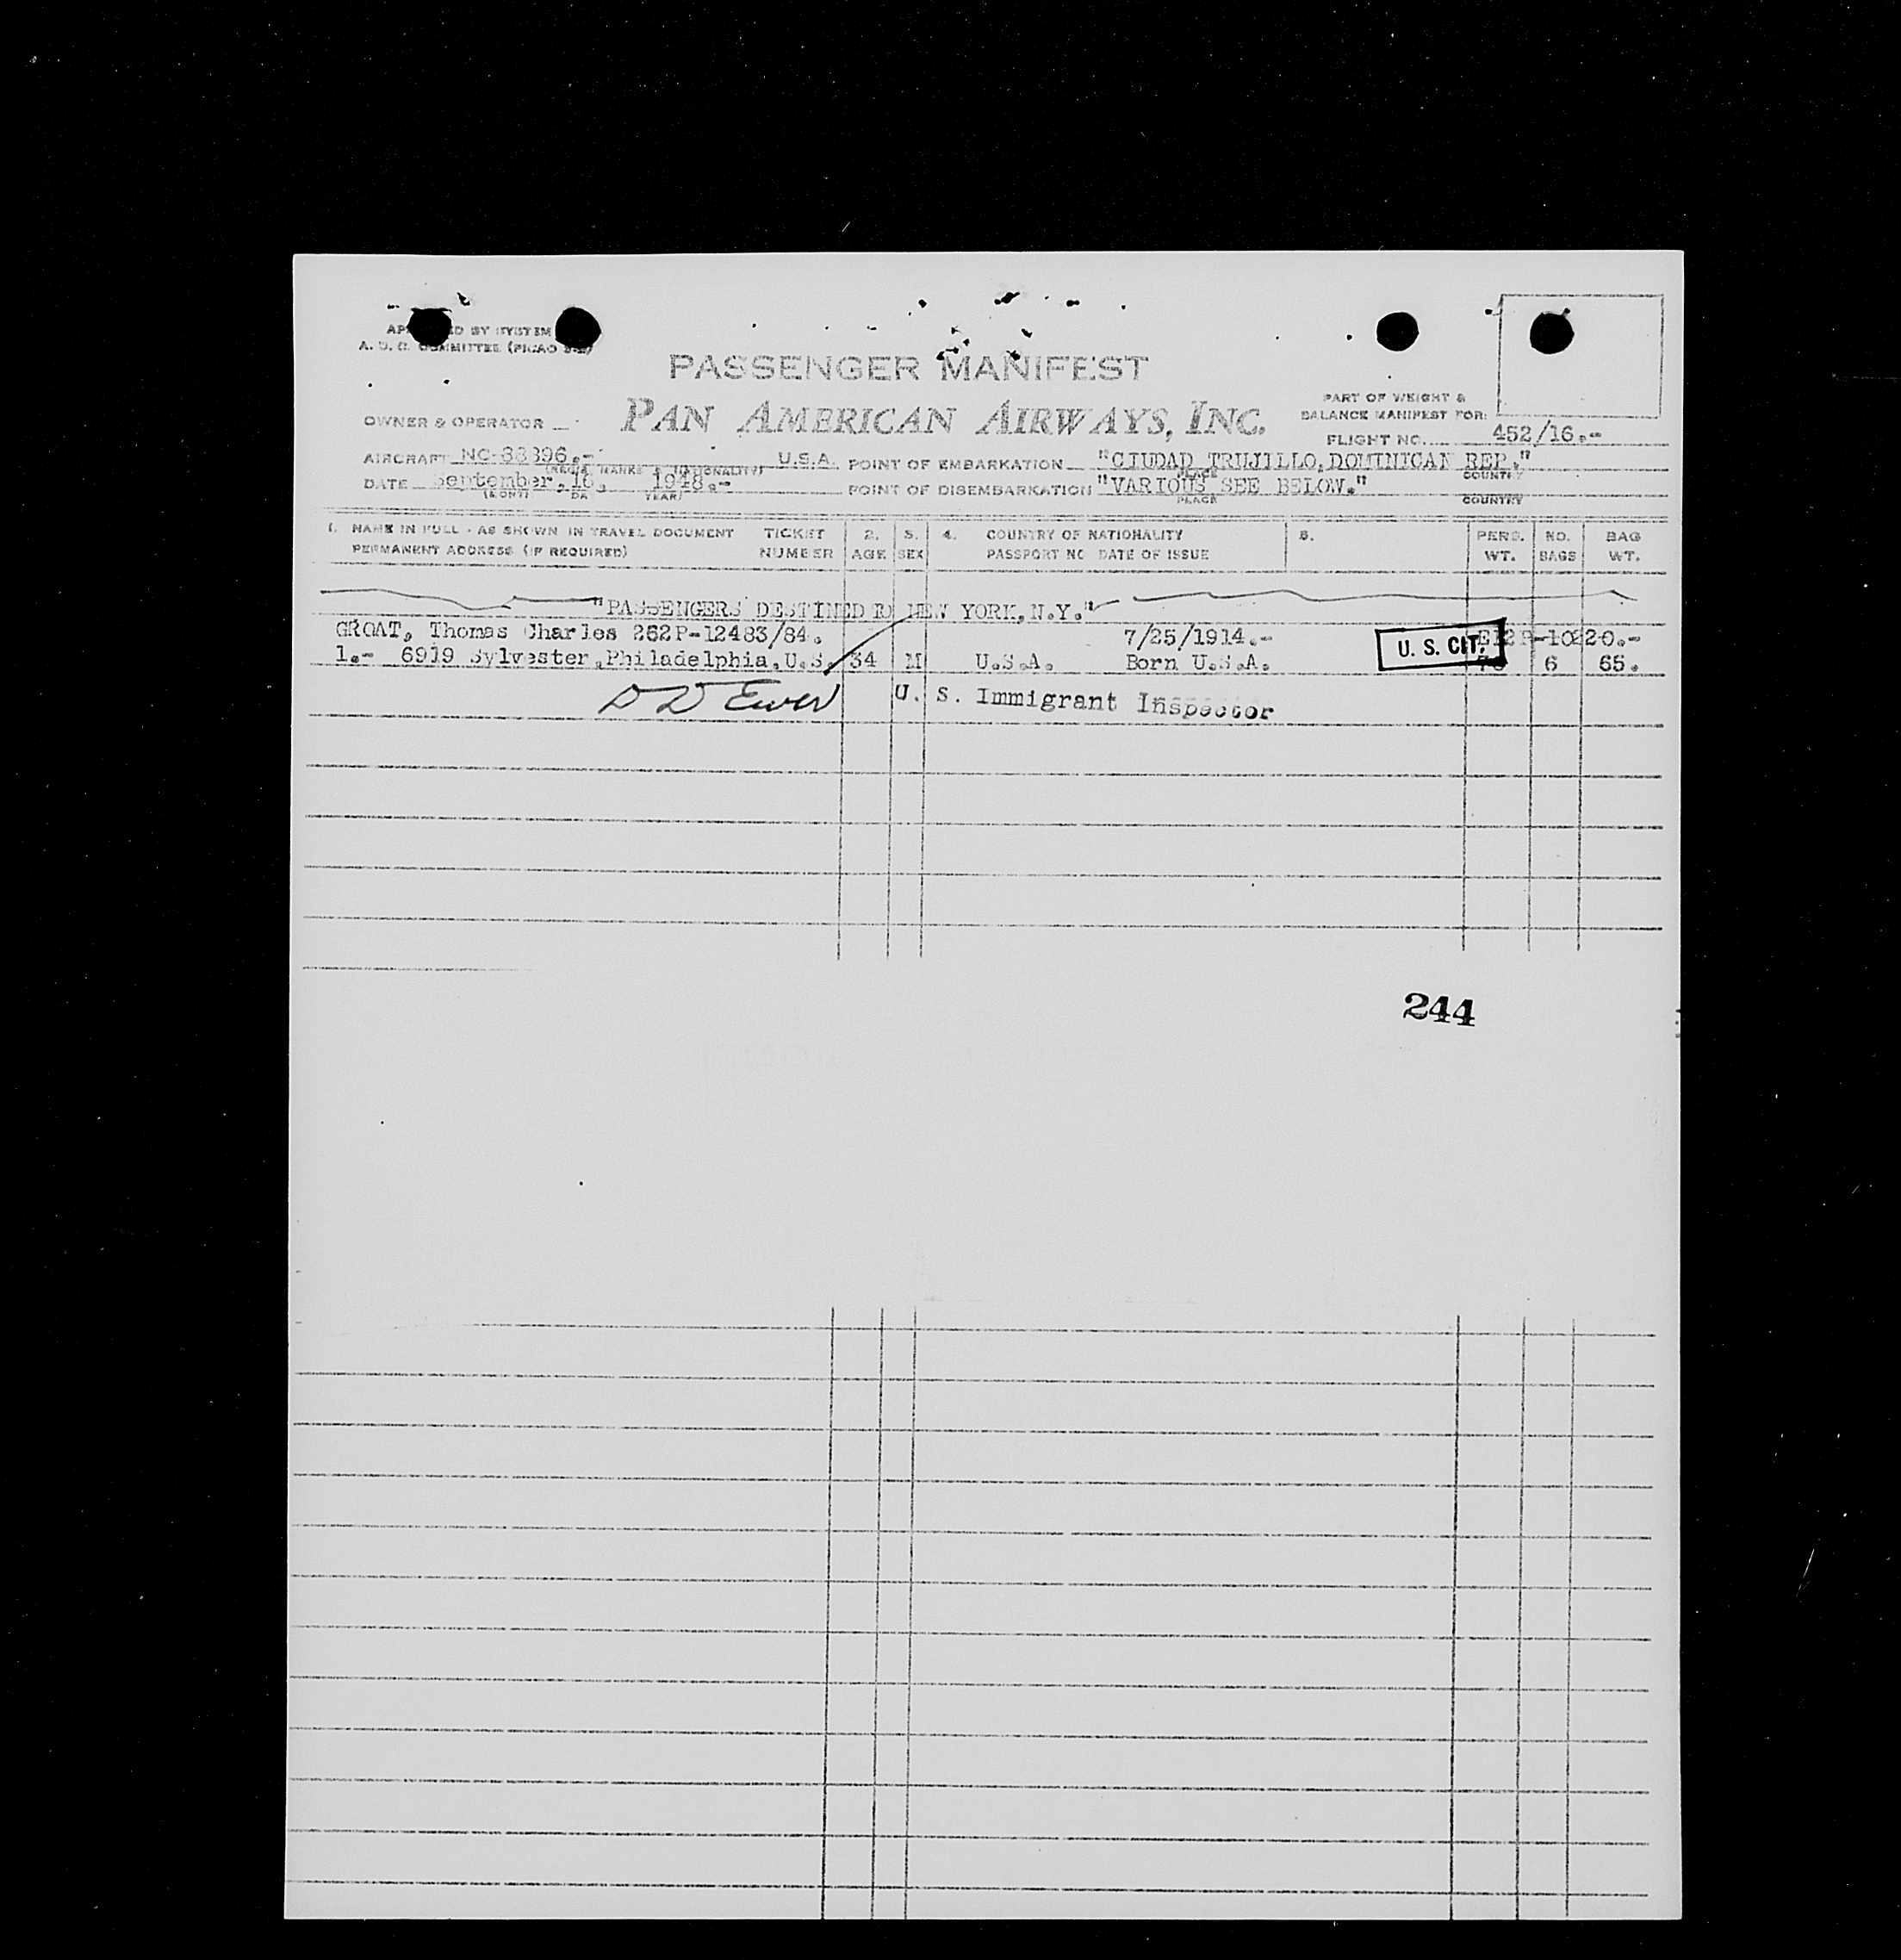 BY SYSTEM
COMMITTEE (PICAO
PASSENGER MANIFEST
PAN AMERICAN AIRWAYS, INC.
OWNER & OPERATOR
PART OF WEIGHT &
BALANCE MANIFEST FOR:
FLIGHT NO. 452/16.-
AIRCRAFT NC-88896.- U.S.A. POINT OF EMBARKATION "CIUDAD TRUJILLO, DOMINICAN REP."
(REGIS. MARKS & NATIONALITY) PLACE COUNTRY
DATE September, 16, 1948.- POINT OF DISEMBARKATION "VARIOUS SEE BELOW."
(MONTH DA YEAR) PLACE COUNTRY
1. NAME IN FULL - AS SHOWN IN TRAVEL DOCUMENT TICKET 2. 3. 4. COUNTRY OF NATIONALITY 5. PERS. NO. BAG
PERMANENT ADDRESS (IF REQUIRED) NUMBER AGE SEX PASSPORT NO DATE OF ISSUE WT. BAGS WT.
"PASSENGERS DESTINED TO NEW YORK, N.Y."
GROAT, Thomas Charles 262P-12483/84. 7/25/1914.-
1.- 6919 Sylvester, Philadelphia, U.S. 34 M U.S.A. Born U.S.A. U. S. CIT. 6 65.
U. S. Immigrant Inspector
244